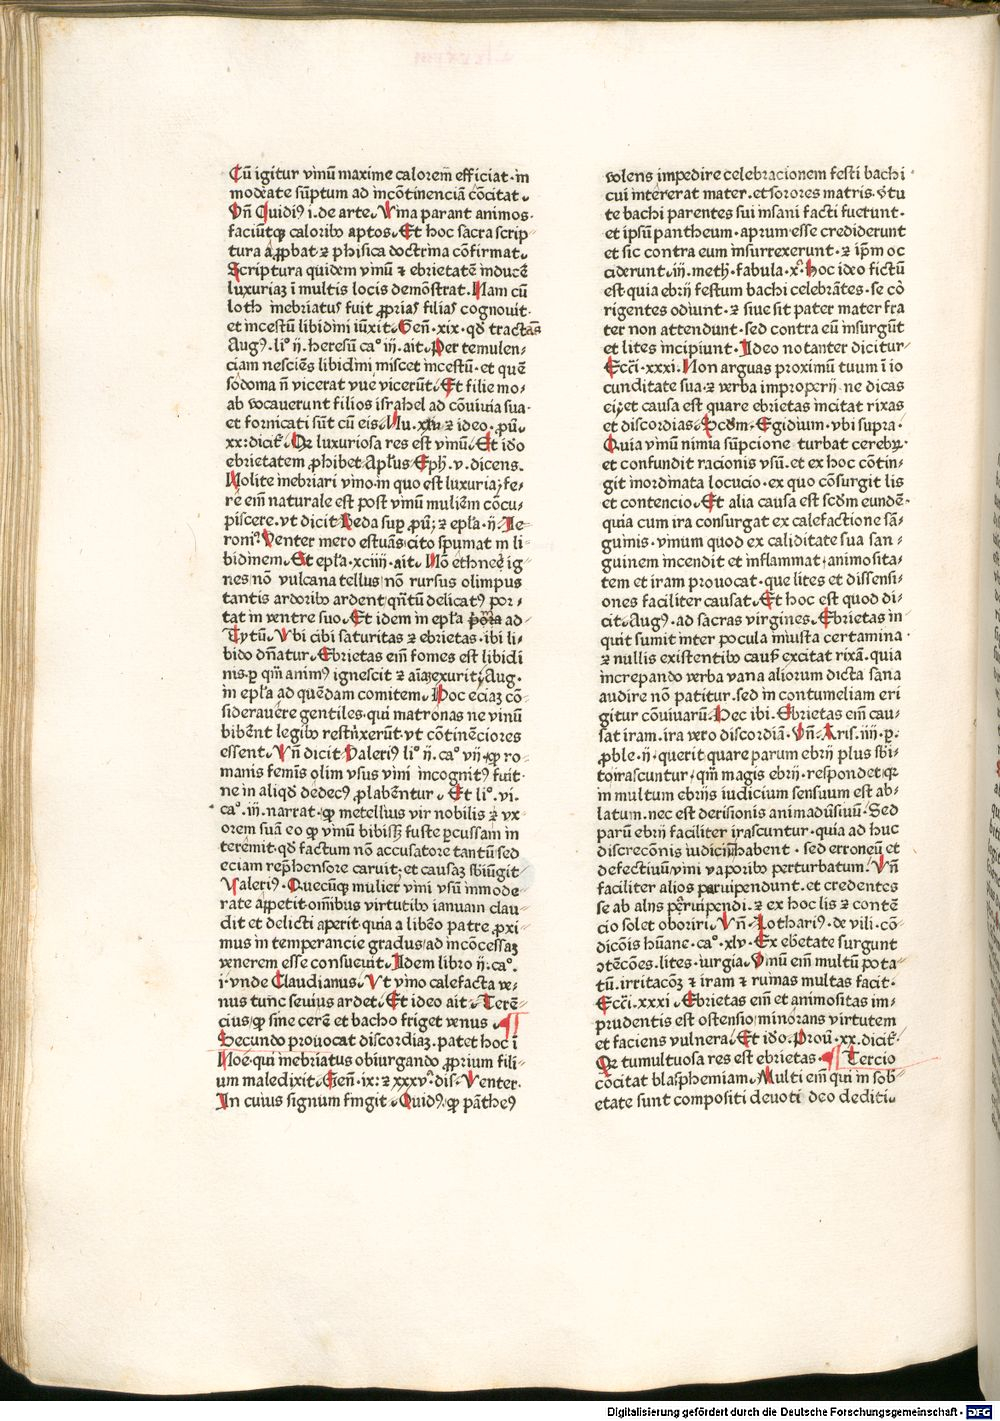 Cū igitur vinū maxime calorem̄ efficiat·in
moderate sūptum ad incōtinenciā cōcitat.
Vn̄ Ouidiꝰ i.de arte.Vina parant animos·
faciūtqꝫ caloribꝰ aptos.Et hoc sacra scrip⸗
tura aꝓbat·ꝛ phisica doctrina cōfirmat.
Scriptura quidem vinū ꝛ ebrietatē inducē
luxuriaꝫ i multis locis demōstrat.Nam cū
loth inebriatus fuit ꝓprias filias cognouit·
et incestū libidini iūxit.Gen̄·xix·qd̄ tractās
Augꝰ.liº ij.heresū caº iij.ait.Per temulen⸗
ciam nesciēs libidini miscet incestū·et quē
sodoma n̄ vicerat vue vicerūt.Et filie mo⸗
ab vocauerunt filios israhel ad cōuiuia sua·
et fornicati sūt cū eis.Nu.xxv·ꝛ ideo·ꝓū·
xx:dicit̄.Qꝛ luxuriosa res est vinū.Et ido
ebrietatem ꝓhibet Apl̄us Eph̄.v.dicens.
Nolite inebriari vino.in quo est luxuria;fe⸗
re em̄ naturale est post vinū muliem̄ cōcu⸗
piscere.vt dicit Beda sup ꝓū; ꝛ epl̄a·ij·Je⸗
roniꝰ.Venter mero estuās cito spumat in li⸗
bidinem.Et epl̄a·xciiij·ait.Nō ethnee ig⸗
nes nō vulcana tellus nō rursus olimpus
tantis ardoribꝰ ardent qn̄tū delicatꝰ por⸗
tat in ventre suo.Et idem in epl̄a ad
Tytū.Vbi cibi saturitas ꝛ ebrietas·ibi li⸗
bido dn̄atur.Ebrietas em̄ fomes est libidi
nis·ꝑ qm̄ animꝰ ignescit ꝛ aīa exurit;Aug.
in epl̄a ad quēdam comitem.Hoc eciaꝫ cō⸗
siderauere gentiles·qui matronas ne vinū
bibēnt legibꝰ restrīxerūt·vt cōtinēciores
essent.Vn̄ dicit Valeriꝰ liº ij.caº vij·qꝫ ro⸗
manis feminis olim vsus vini incognitꝰ fuit·
ne in aliqd̄ dedecꝰ ꝓlabēntur.Et liº.vi.
caº.iij.narrat·qꝫ metellius vir nobilis ꝛ vx
orem suā eo qꝫ vinū bibissꝫ fuste ꝑcussam in
teremit·qd̄ factum nō accusatore tantū sed
eciam rep̄hensore caruit;et causaꝫ sbiūgit
Valeriꝰ.Quecūqꝫ mulier vini vsū īmode⸗
rate appetit·omībus virtutibꝰ ianuam clau⸗
dit et delicti aperit·quia a libēo patre ꝓxi⸗
mus in temperancie gradus ad incōcessaꝫ
venerem esse consueuit.Idem libro ij.caº.
i·vnde Claudianus.Vt vino calefacta ve⸗
nus tunc seuius ardet.Et ideo ait.Terē⸗
cius·qꝫ sine cerē et bacho friget venus.
Secundo prouocat discordiaꝫ.patet hoc ī
Noe·qui inebriatus obiurgando ꝓprium fili⸗
um maledixit.Gen̄·ix:ꝛ xxxvº.dis.Venter.
In cuius signum fingit.Ouidꝰ qꝫ pātheꝰ
volens impedire celebracionem festi bachi·
cui intererat mater·et sorores matris·vtu
te bachi parentes sui insani facti fuerunt·
et ipsū pantheum·aprum esse crediderunt
et sic contra eum insurrexerunt·ꝛ ip̄m oc
ciderunt.iij.meth·fabula·xº.hoc ideo fictū
est quia ebrij festum bachi celebrātes·se cō
rigentes odiunt·ꝛ siue sit pater mater fra
ter non attendunt·sed contra eū insurgūt
et lites incipiunt.Ideo notanter dicitur
Ecc̄i·xxxi.Non arguas proximū tuum ī io
cunditate sua·ꝛ verba improperij ne dicas
ei;et causa est quare ebrietas incitat rixas
et discordias.Scdm̄·Egidium·vbi supra·
Quia vinū nimia sūpcione turbat cerebꝝ·
et confundit racionis vsū.et ex hoc cōtin⸗
git inordinata locucio·ex quo cōsurgit lis
et contencio.Et alia causa est scdm̄ eundē·
quia cum ira consurgat ex calefactione sā⸗
guinis·vinum quod ex caliditate sua san⸗
guinem incendit et inflammat·animosita⸗
tem et iram prouocat·que lites et dissensi⸗
ones faciliter causat.Et hoc est quod di⸗
cit.Augꝰ.ad sacras virgines.Ebrietas in
quit sumit inter pocula iniusta certamina·
ꝛ nullis existentibꝰ causꝭ excitat rixā.quia
increpando verba vana aliorum dicta sana
audire non patitur.sed in contumeliam eri
gitur cōuiuarū.Hec ibi.Ebrietas em̄ cau⸗
sat iram.ira vero discordiā.Vn̄.Aris.iiij.ꝑ·
ꝓble·ij·querit quare parum ebrij plus sbi⸗
to irascuntur·qm̄ magis ebrij·respondet qꝛ
in multum ebrijs iudicium sensuum est ab⸗
latum.nec est derisionis animadūsiuū·Sed
parū ebrij faciliter irascuntur·quia ad huc
discrecōnis iudiciū habent·sed erroneū et
defectiuū vini vaporibꝰ perturbatum.Vn̄
faciliter alios paruipendunt.et credentes
se ab alijs paruipendi.ꝛ ex hoc lis ꝛ contē
cio solet oboriri.Vn̄.Lothariꝰ.de vili·cō⸗
dicōis hūane·caº.xlv·Ex ebetate surgunt
ↄtēcōes.lites·iurgia.Vinū em̄ multū pota⸗
tū.irritacōꝫ ꝛ iram ꝛ ruinas multas facit·
Ecc̄i.xxxi.Ebrietas em̄ et animositas im⸗
prudentis est ostensio minorans virtutem
et faciens vulnera.Et ido.Prou̅·xx.dicit̄·
Qꝛ tumultuosa res est ebrietas.Tercio
cōcitat blasphemiam.Multi em̄ qui in sob⸗
etate sunt compositi deuoti deo dediti.
Digitalisierung gefördert durch die Deutsche Forschungsgemeinschaft - DFG